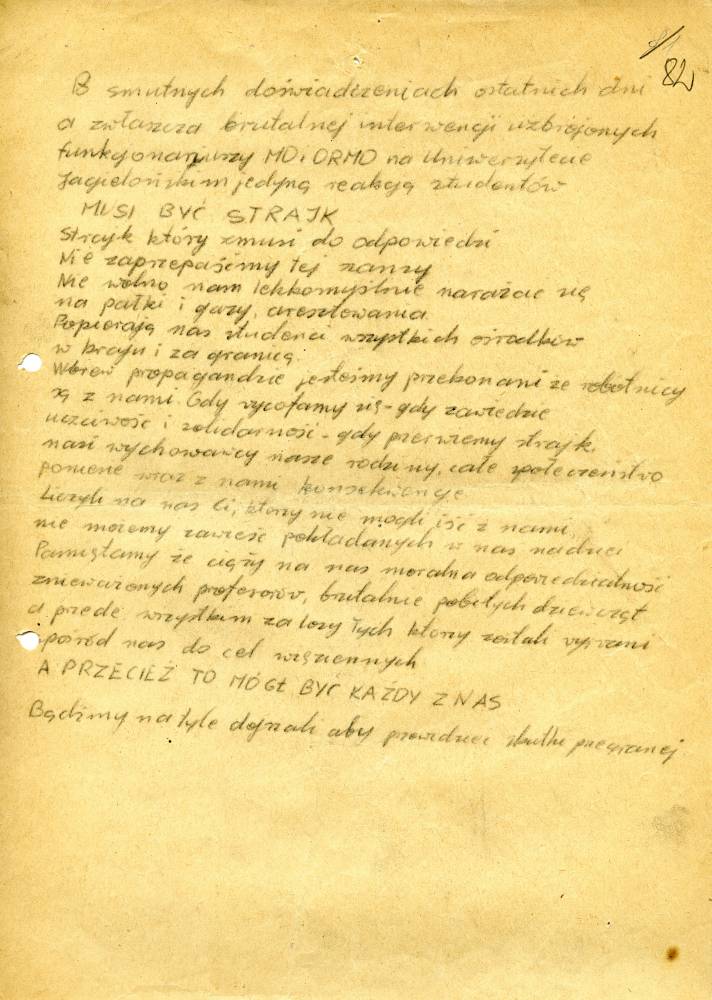 82
smutnych doświadczeniach ostatnich dni
a zwłaszcza brutalnej interwencji uzbrojonych
funkcjonariuszy MO i ORMO na Uniwersytecie
Jagielońskim jedyną reakcją studentów
MUSI BYĆ STRAJK
Strajk który zmusi do odpowiedzi
Nie zaprzepaśćmy tej szansy
Nie wolno nam lekkomyślnie narażać się
na pałki i gazy, aresztowania.
Popierają nas studenci wszystkich ośrodków
w kraju i za granicą.
Wbrew propagandzie jesteśmy przekonani że robotnicy
są z nami. Gdy wycofamy się - gdy zawiedzie
uczciwość i solidarność - gdy przerwiemy strajk,
nasi wychowawcy nasze rodziny, całe społeczeństwo
poniesie wraz z nami konsekwencje
Liczyli na nas Ci, którzy nie mogli iść z nami,
nie możemy zawieść pokładanych w nas nadziei
Pamiętamy że ciąży na nas moralna odpowiedzialność
znieważonych profesorów, brutalnie pobitych dziewcząt
a przede wszystkim za losy tych którzy zostali wyrwani
spośród nas do cel więziennych
A PRZECIEŻ TO MÓGŁ BYĆ KAŻDY Z NAS
Bądźmy na tyle dojrzali aby przewidzieć skutki przegranej